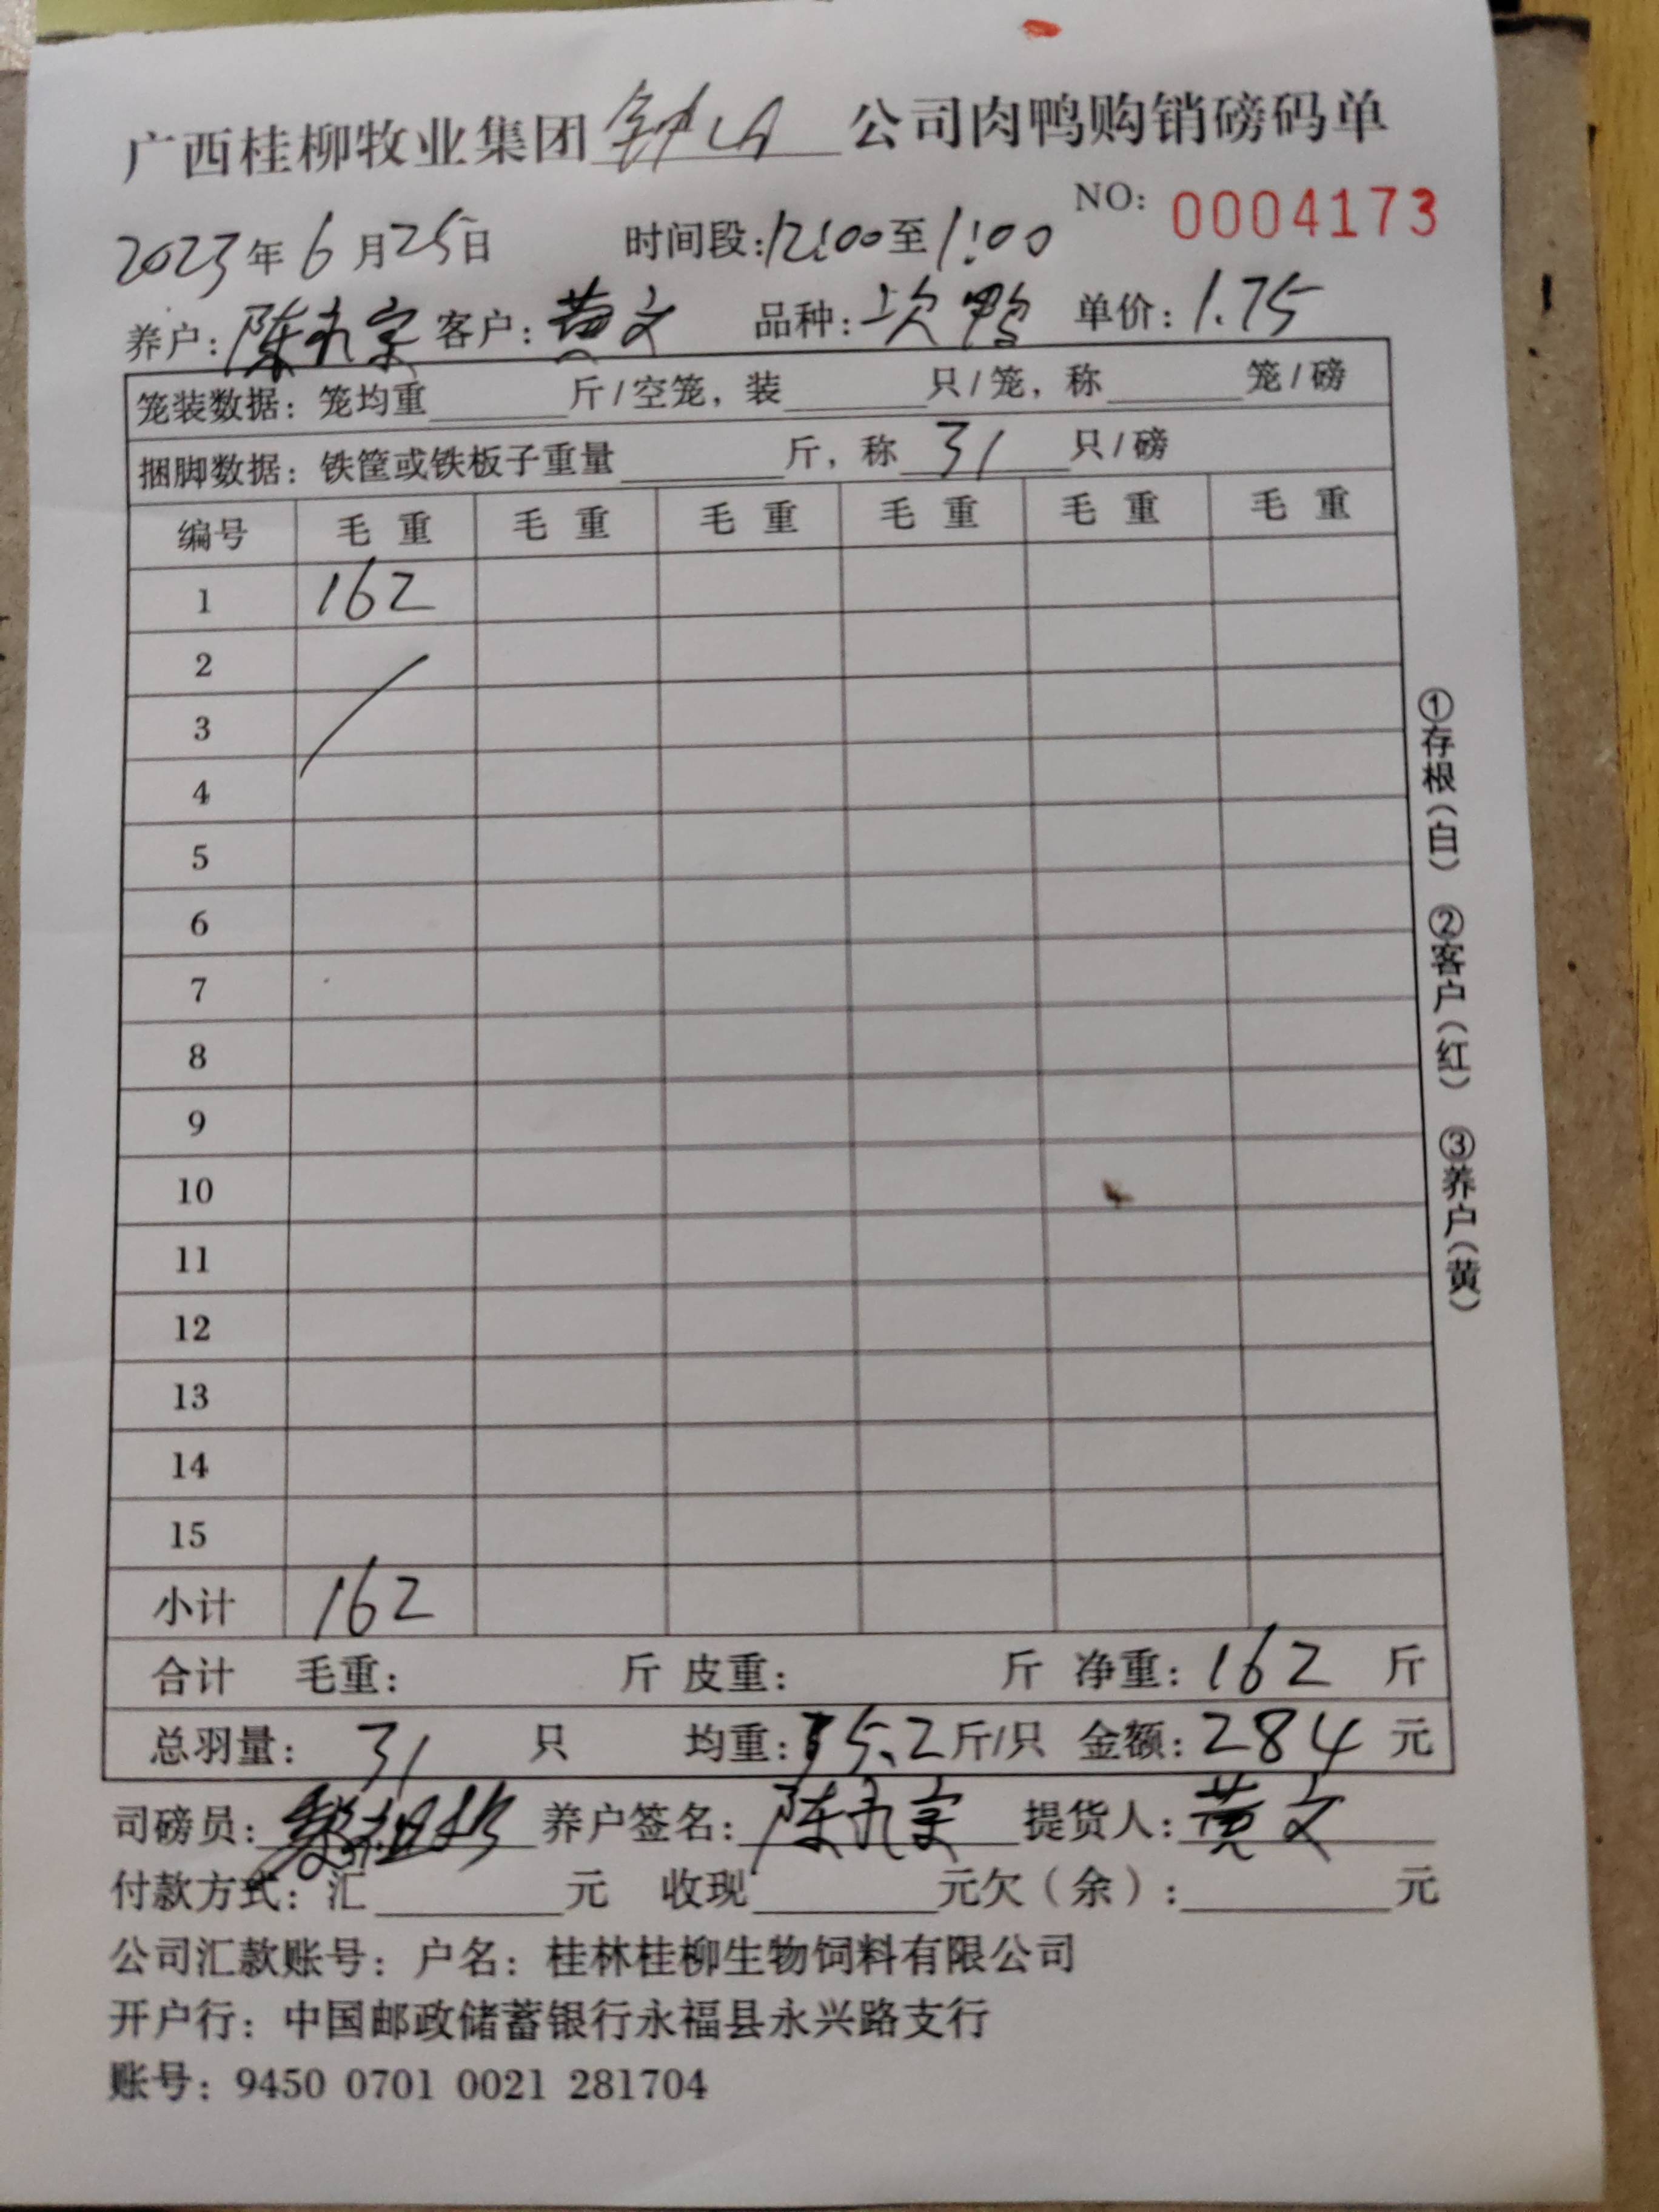 广西桂柳牧业集团钟山公司肉鸭购销磅码单
NO: 0004173
2023年6月25日 时间段:12:00至1:00
养户:陈九宗 客户:黄文 品种:次鸭 单价:1.75
笼装数据:笼均重 斤/空笼,装 只/笼,称 笼/磅
捆脚数据:铁筐或铁板子重量 斤,称 31 只/磅
编号 毛重 毛重 毛重 毛重 毛重 毛重
1 162
2
3
4
5
6
7
8
9
10
11
12
13
14
15
小计 162
合计 毛重: 斤 皮重: 斤 净重:162 斤
总羽量:31 只 均重:5.2斤/只 金额:284 元
司磅员: 养户签名:陈九宗 提货人:黄文
付款方式:汇 元 收现 元欠(余): 元
公司汇款账号:户名:桂林桂柳生物饲料有限公司
开户行:中国邮政储蓄银行永福县永兴路支行
账号:9450 0701 0021 281704
①存根(白) ②客户(红) ③养户(黄)